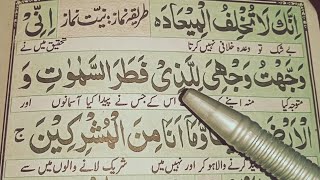 اِنَّكَ لَا تُخْلِفُ الْمِيْعَادَ طریقہ نماز: نیت نماز اِنِّیْ
بے شک تو وعدہ خلافی نہیں کرتا تحقیق میں نے
وَجَّهْتُ وَجْهِیَ لِلَّذِیْ فَطَرَ السَّمٰوٰتِ وَ
متوجہ کیا منہ اپنے اس کے جس نے پیدا کیا آسمانوں اور
الْاَرْضَ وَّمَا اَنَا مِنَ الْمُشْرِكِيْنَ
کرنے والا ہو کر اور نہیں میں شریک لانے والوں میں سے